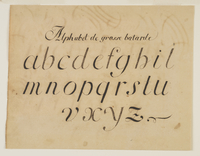 Alphabet de grosse batarde
abcdefghil
mnopqrstu
vxyz